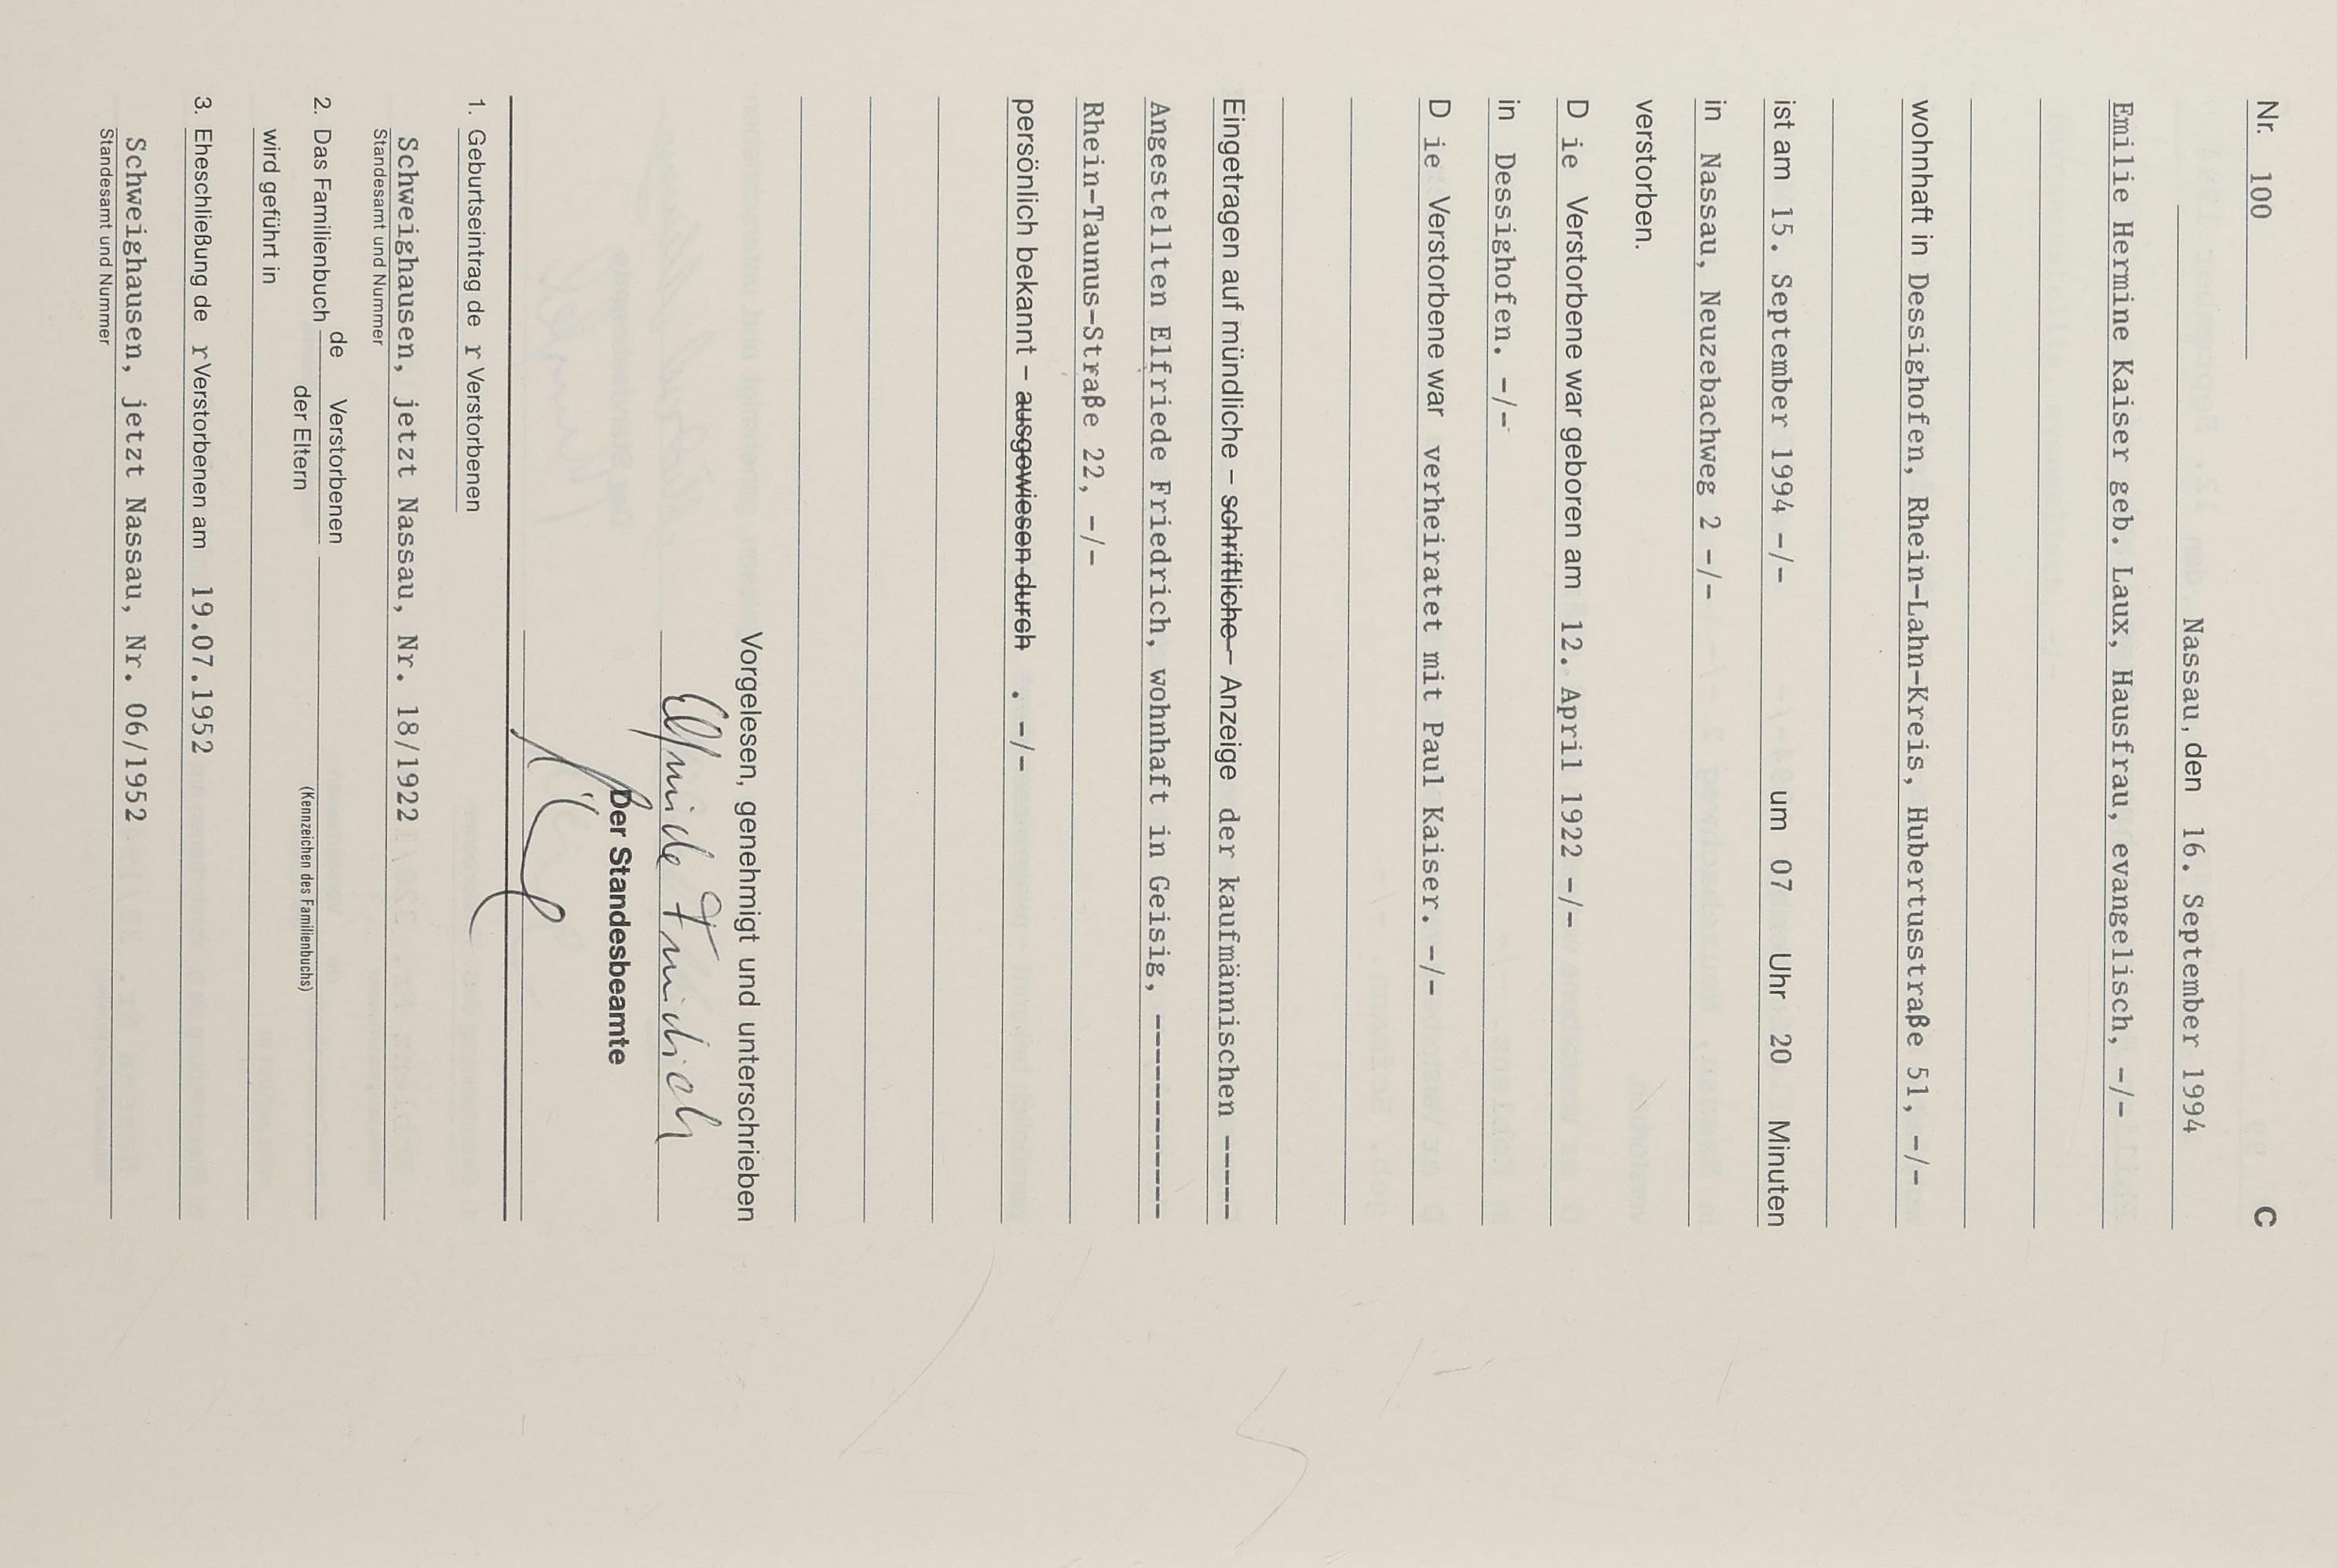 Nr. 100 C
Nassau, den 16. September 1994
Emilie Hermine Kaiser geb. Laux, Hausfrau, evangelisch, -/-
wohnhaft in Dessighofen, Rhein-Lahn-Kreis, Hubertusstraße 51, -/-
ist am 15. September 1994 -/- um 07 Uhr 20 Minuten
in Nassau, Neuzebachweg 2 -/-
verstorben.
D ie Verstorbene war geboren am 12. April 1922 -/-
in Dessighofen. -/-
D ie Verstorbene war verheiratet mit Paul Kaiser. -/-
Eingetragen auf mündliche – schriftliche – Anzeige der kaufmännischen -----
Angestellten Elfriede Friedrich, wohnhaft in Geisig, ------------
Rhein-Taunus-Straße 22, -/-
persönlich bekannt – ausgewiesen durch . -/-
Vorgelesen, genehmigt und unterschrieben
Elfriede Friedrich
Der Standesbeamte
1. Geburtseintrag de r Verstorbenen
Schweighausen, jetzt Nassau, Nr. 18/1922
Standesamt und Nummer
2. Das Familienbuch de Verstorbenen
der Eltern
(Kennzeichen des Familienbuchs)
wird geführt in
3. Eheschließung de r Verstorbenen am 19.07.1952
Schweighausen, jetzt Nassau, Nr. 06/1952
Standesamt und Nummer